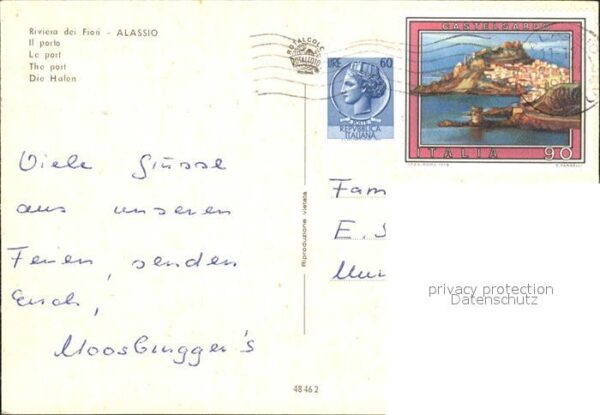 Riviera dei Fiori - ALASSIO
Il porto
Le port
The port
Die Hafen
ROTALCOLOR
ROTALFOTO
LIRE 60
POSTE
REPVBBLICA
ITALIANA
CASTELSARDO
ITALIA 90
Viele Grüsse
aus unseren
Ferien, senden
Euch,
Moosbrugger's
Riproduzione vietata
Fam
E. S
48462
privacy protection
Datenschutz